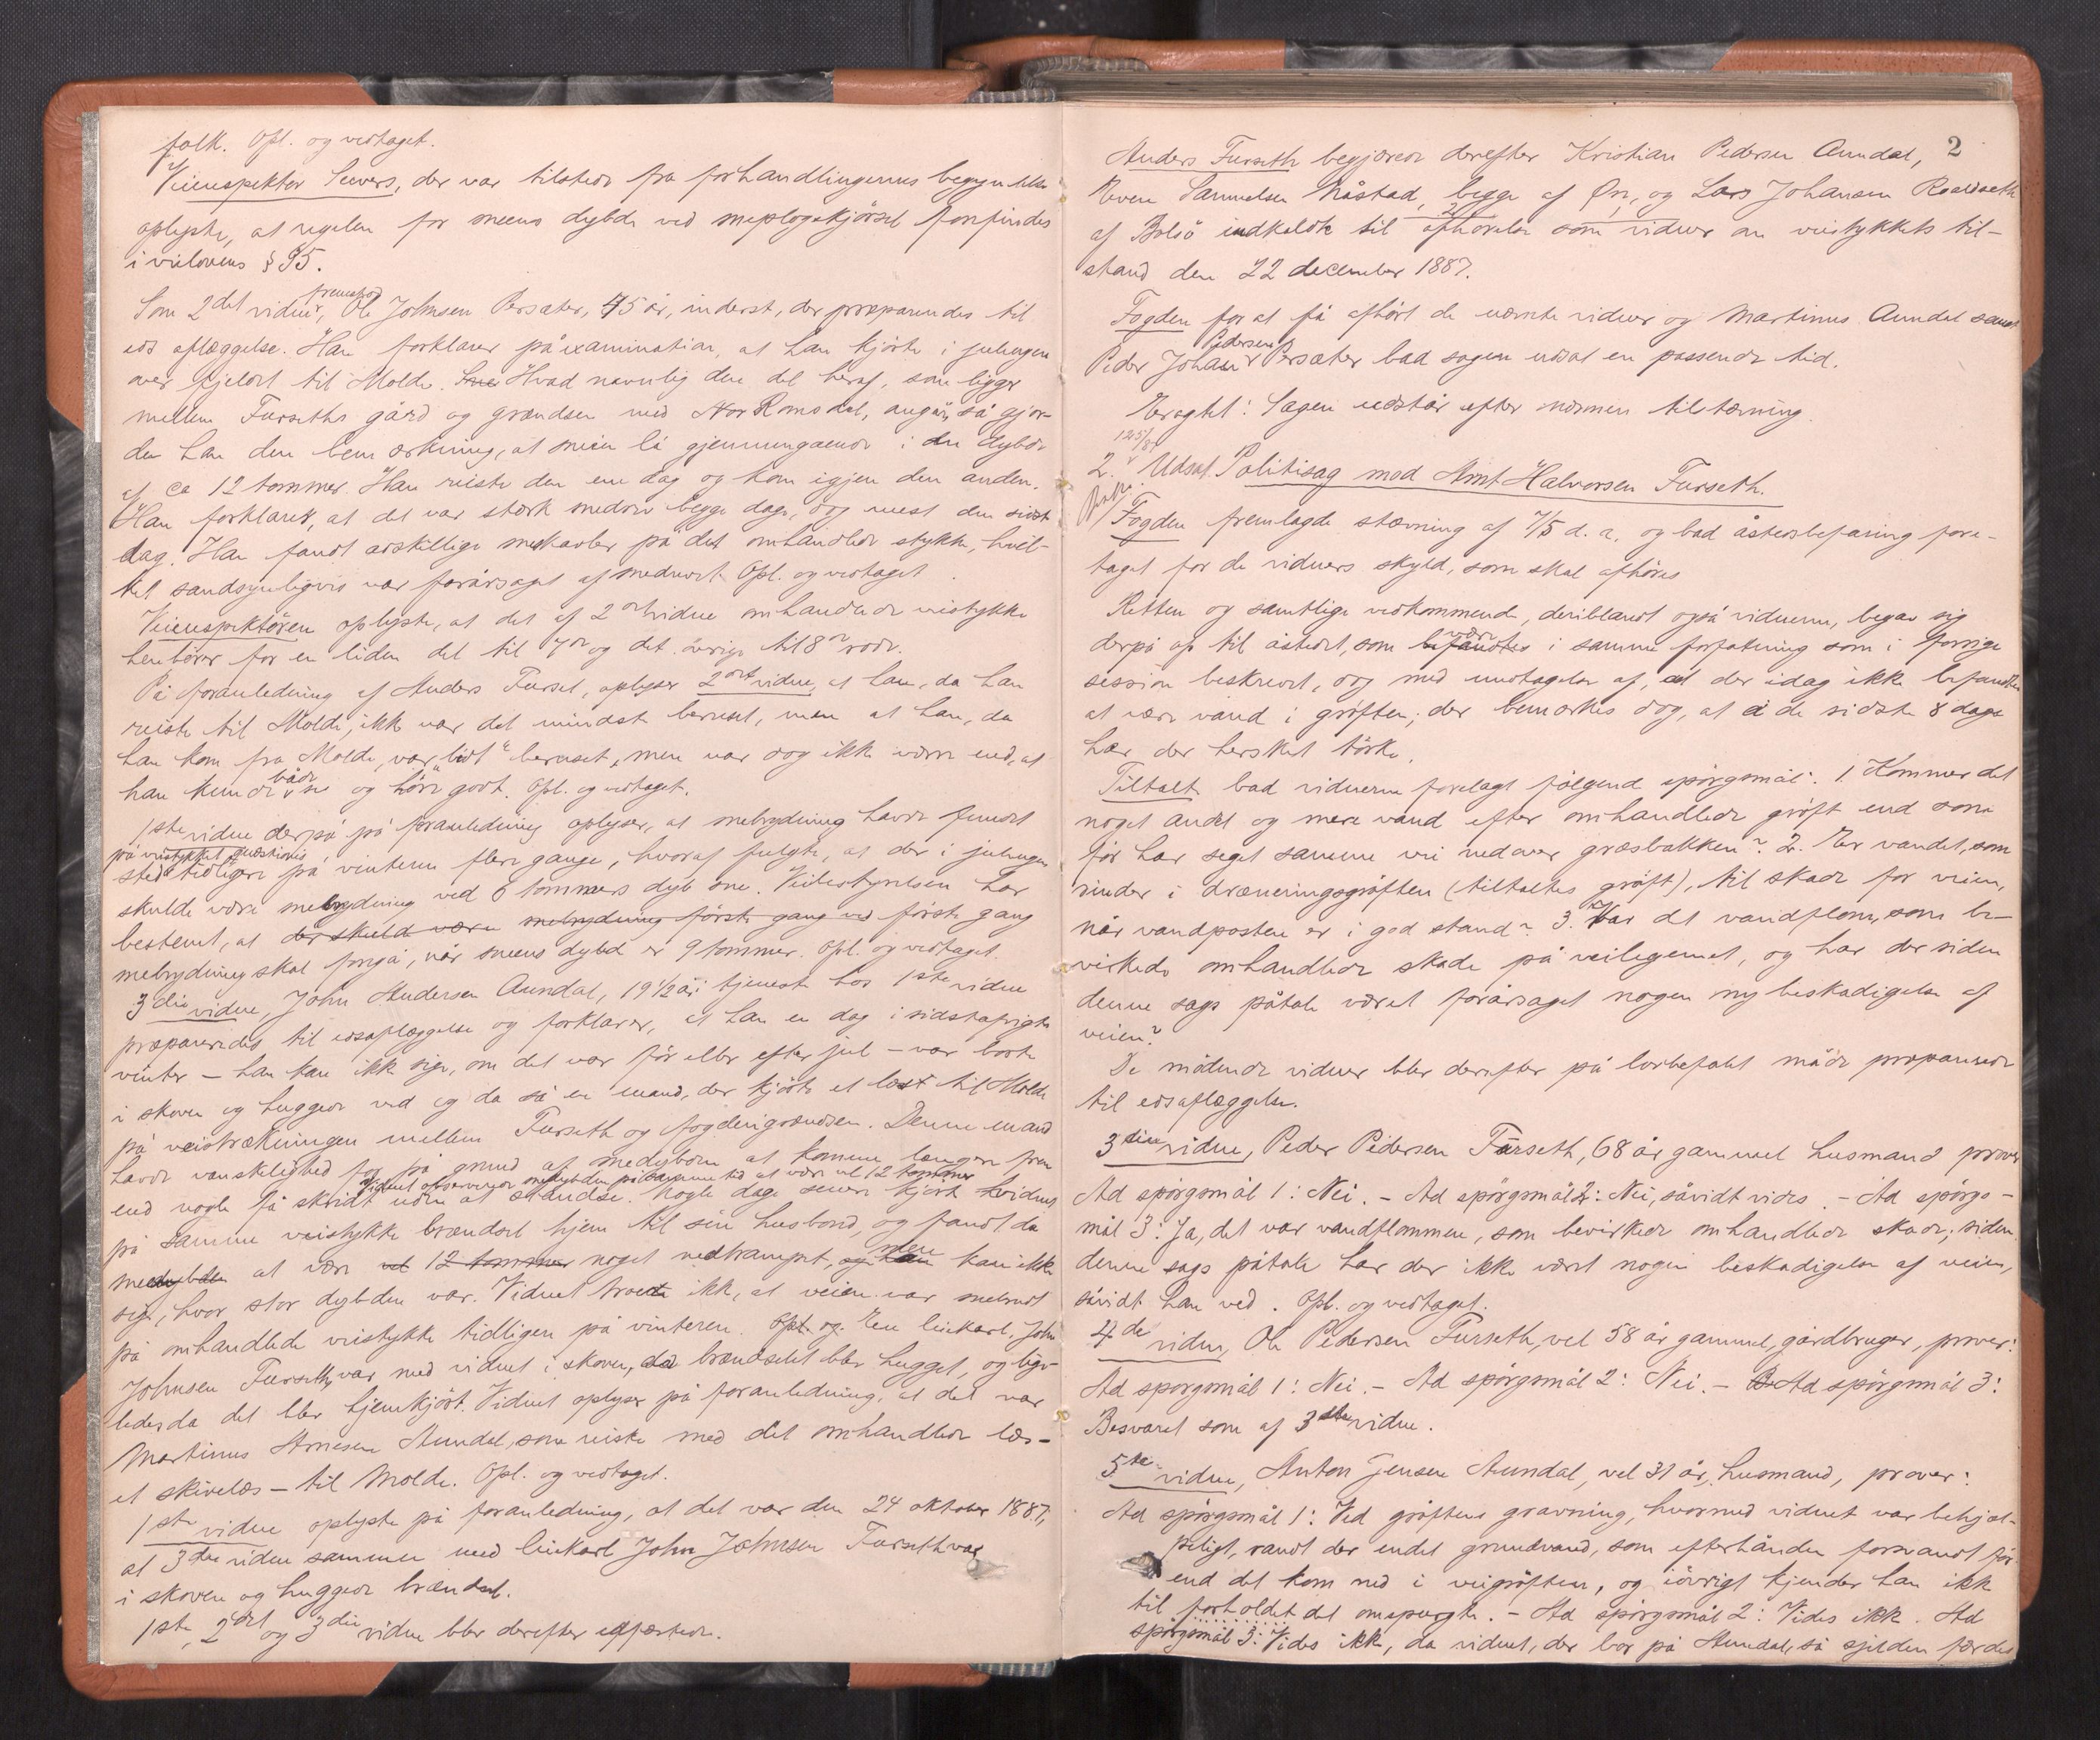 folk. Opl. og vedtaget.
Veiinspektør Sevors, der var tilstede fra forhandlingernes begyndelse
oplyste, at regelen for sneens dybde ved sneplogskjørsel forefindes
i veilovens § 35.
Som 2det vidne, fremstod Ole Johnsen Persæter, 45 år, inderst, der præparendes til
eds aflæggelse. Han forklarer på examination, at han kjørte i julhugen
over fjeldet til Molde. Sne Hvad navnlig den del heraf, som ligger
mellem Furseths gård og grændsen med Nor Romsdal, angår, så gjor-
de han den bemærkning, at sneen lå gjennemgaaende i en dybde
af ca 12 tommer. Han reiste den ene dag og kom igjen den anden.
Han forklarer, at det var stærk snedriv begge dage, dog mest den sidste
dag. Han fandt adskillige sneskavler på det omhandlede stykke, hvil-
ket sandsynligvis var forårsaget af snedrevet. Opl. og vedtaget.
Veiinspektøren oplyste, at det af 2det vidne omhandlede veistykke
henhører for en liden del til 7de og det øvrige til 8de rode.
På foranledning af Anders Furset, oplyser 2det vidne, at han, da han
reiste til Molde, ikke var det mindste beruset, men at han, da
han kom fra Molde, var "lidt" beruset, men var dog ikke værre end, at
han kunde både se og høre godt. Opl. og vedtaget.
1ste vidne derpå på foranledning oplyser, at snebrydning havde fundet
på veistykket quæstionis
sted tidligere på vinteren flere gange, hvoraf fulgte, at der i julhugen
skulde være snebrydning ved 6 tommers dyb sne. Veibestyrelsen har
bestemt, at der skulde være snebrydning første gang ved første gang
snebrydning skal foregå, når sneens dybde er 9 tommer. Opl. og vedtaget.
3die vidne, John Andersen Aundal, 19 1/2 år, tjeneste hos 1ste vidne
præpareredes til edsaflæggelse og forklarer, at han en dag i sidstafvigte
vinter – han kan ikke sige, om det var før eller efter jul – var borte
i skoven og huggede ved og da så en mand, der kjørte et læs til Molde
på veistrækningen mellem Furseth og fogderigrændsen. Denne mand
havde vanskelighed for på grund af snedybden at komme længere frem
vidnet observerede snedybden på samme tid at være vel 12 tommer
end nogle få skridt uden at standse. Nogle dage senere kjørte vidnet
på samme veistykke brændsel hjem til sin husbond, og fandt da
snedybden at være vel 12 tommer noget nedtrampet, og han men kan ikke
sige, hvor stor dybden var. Vidnet troede ikke, at veien var snebrudt
på omhandlede veistykke tidligere på vinteren. Opl. og. En leiekarl, John
Johnsen Furseth, var med vidnet i skoven, da brændselet blev hugget, og lige-
ledes da det blev hjemkjørt. Vidnet oplyser på foranledning, at det var
Martinus Arnesen Aundal, som reiste med det omhandlede læs –
et skivelæs – til Molde. Opl. og vedtaget.
1ste vidne oplyste på foranledning, at det var den 24 oktober 1887,
at 3die vidne sammen med leiekarl John Johnsen Furseth var
i skoven og huggede brændsel.
1ste, 2det og 3die vidne blev derefter edfæstede.
2
Anders Furseth begjærer derefter Kristian Pedersen Aundal,
Even Samuelsen Måstad, begge af Øre, og Lars Johansen Roaldseth
af Bolsø indkaldte til afhørelse som vidner om veistykkets til-
stand den 22 december 1887.
Fogden for at få afhørt de nævnte vidner og Martinus Aundal samt
Peder Johan Pedersen Persæter bad sagen udsat en passende tid.
Eragtet: Sagen udstår efter nærmere tilstævning.
125/87
2. Udsat Politisag mod Arnt Halvorsen Furseth.
Fogden fremlagde stævning af 7/5 d. a. og bad åstedsbefaring fore-
taget for de vidners skyld, som skal afhøres
Retten og samtlige vedkommende, deriblandt også vidnerne, begav sig
derpå op til åstedet, som befandtes være i samme forfatning som i forrige
session beskrevet, dog med undtagelse af, at der idag ikke befandtes
at være vand i grøften; der bemærkes dog, at i de sidste 8 dage
har der hersket tørke.
Tiltalt bad vidnerne forelagt følgende spørgsmål: 1. Kommer det
noget andet og mere vand efter omhandlede grøft end som
før har seget samme vei nedover græsbakken? 2. Er vandet, som
rinder i dræneringsgrøften (tiltaltes grøft), til skade for veien,
når vandposten er i god stand? 3. Var det vandflom, som be-
virkede omhandlede skade på veilegemet, og har der siden
denne sags påtale været forårsaget nogen ny beskadigelse af
veien?
De mødende vidner blev derefter på lovbefalet måde præparerede
til edsaflæggelse.
3die vidne, Peder Pedersen Furseth, 68 år gammel husmand prover
Ad spørgsmål 1: Nei. – Ad spørgsmål 2: Nei, såvidt vides. – Ad spørgs-
mål 3: Ja, det var vandflommen, som bevirkede omhandlede skade; siden
denne sags påtale har der ikke været nogen beskadigelse af veien,
såvidt han ved. Opl. og vedtaget.
4de vidne, Ole Pedersen Furseth, vel 58 år gammel, gårdbruger, prover:
Ad spørgsmål 1: Nei. – Ad spørgsmål 2: Nei. – Ad spørgsmål 3:
Besvaret som af 3die vidne.
5te vidne, Anton Jensen Aundal, vel 31 år, husmand, prover:
Ad spørgsmål 1: Ved grøftens gravning, hvormed vidnet var behjæl-
peligt, randt der endel grundvand, som efterhånden forsvandt før-
end det kom ned i veigrøften, og iøvrigt kjender han ikke
til forholdet det omspurgte. – Ad spørgsmål 2: Vides ikke. Ad
spørgsmål 3: Vides ikke, da vidnet, der bor på Aundal, så sjelden færdes